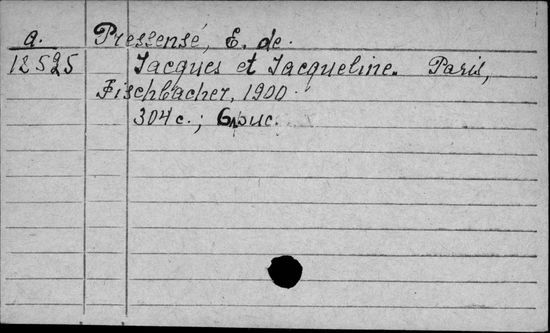 a. Pressensé, E. de.
12525 Jacques et Jacqueline. Paris,
Fischbacher, 1900.
304 с.; 6 рис.